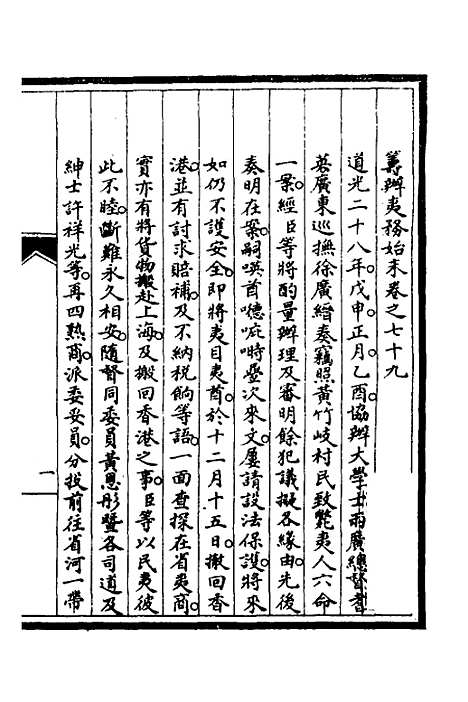 籌辦夷務始末卷之七十九
道光二十八年戊申正月乙酉協辦大學士兩廣總督耆
英廣東巡撫徐廣縉奏竊照黃竹岐村民致斃夷人六命
一案經臣等將酌量辦理及審明餘犯議擬各緣由先後
奏明在案嗣㗆酋噫㕶時疊次來文屢請設法保護將來
如仍不護安全即將夷目夷酋於十二月十五日撤回香
港並有討求賠補及不納稅餉等語一面查探在省夷商
實亦有將貨物搬赴上海及搬回香港之事臣等以民夷彼
此不睦斷難永久相安隨督同委員黃恩彤暨各司道及
紳士許祥光等再四熟商派委妥員分投前往省河一帶
一